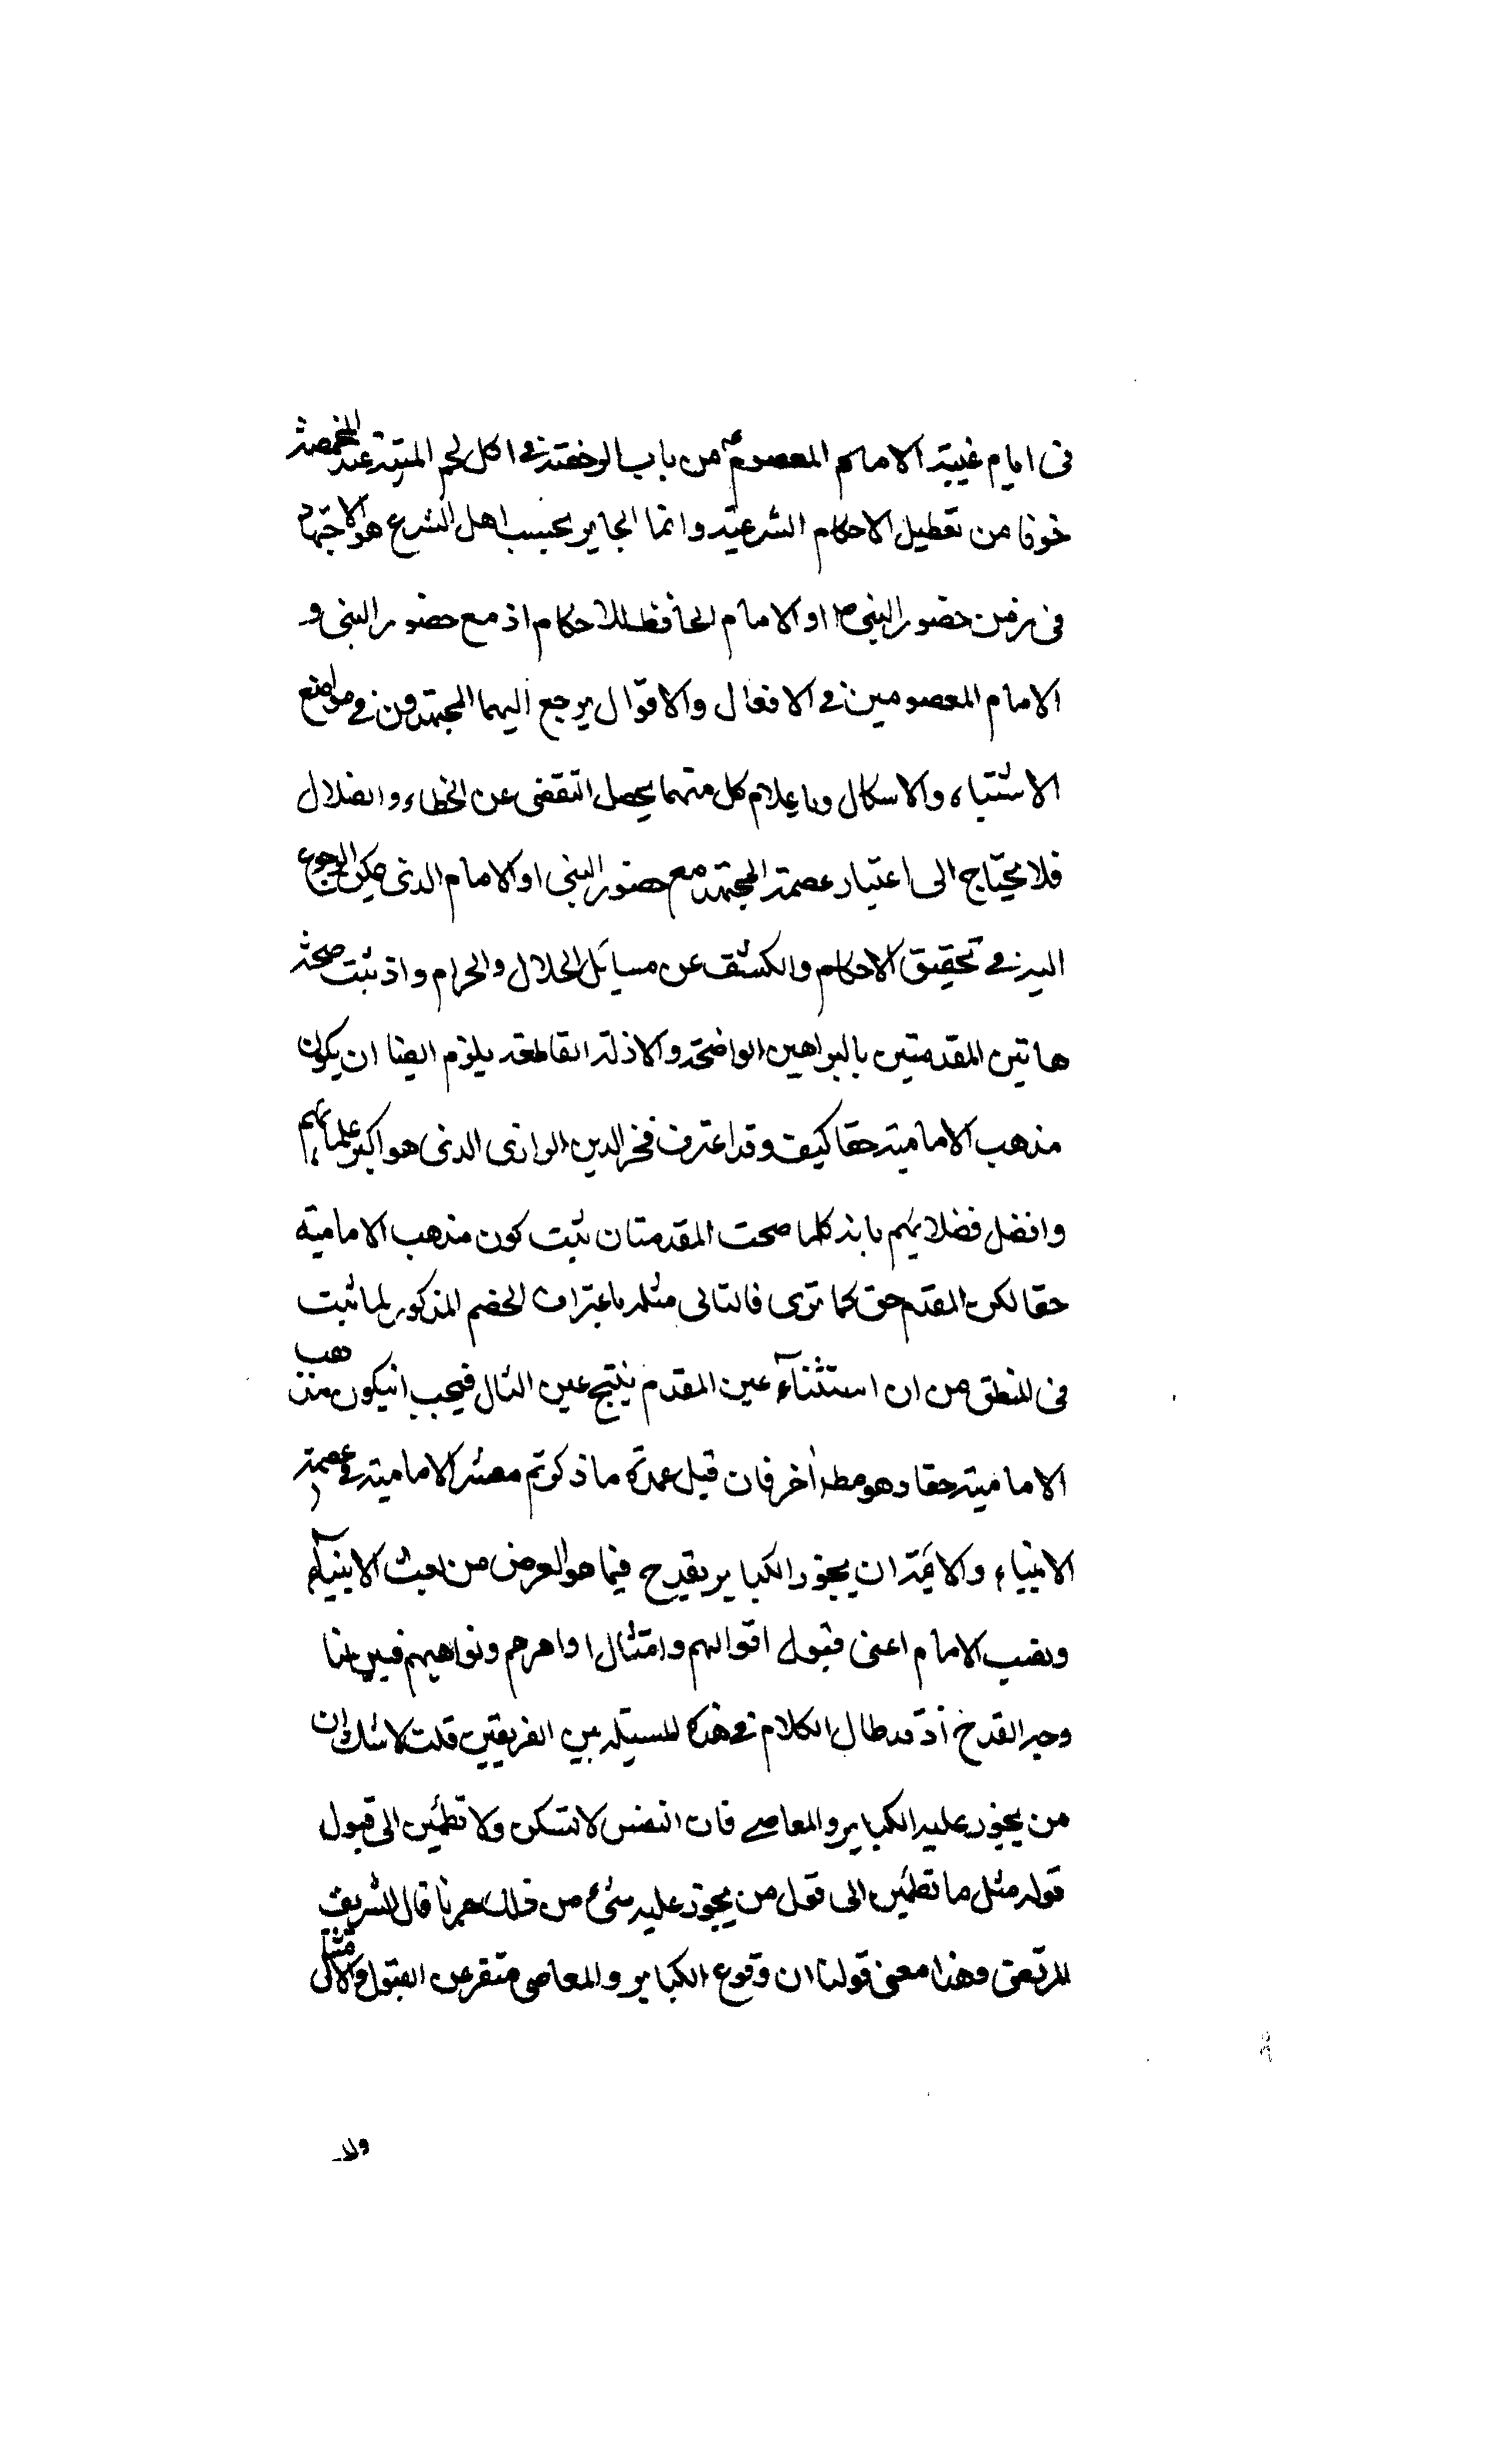 فى ايام غيبة الامام المعصوم ع من باب الرخصة فے اكل لحم الميتة عند المخمصة
خوفا من تعطيل الاحكام الشرعية وانما الجايز بحسب اهل الشرع هو الاجتهاد
فى زمن حضور النبى ص او الامام الحافظ للاحكام اذ مع حضور النبى و
الامام المعصومين فے الافعال والاقوال يرجع اليهما المجتهدون فے مواضع
الاشتباه والاشكال وباعلام كل منهما يحصل التفصى عن الخطاء والضلال
فلا يحتاج الى اعتبار عصمة المجتهد مع حضور النبى او الامام الذى يمكن الرجوع
اليه فے تحقيق الاحكام والكشف عن مسايل الحلال والحرام واذ ثبت صحة
هاتين المقدمتين بالبراهين الواضحة والادلة القاطعة يلزم ايضا ان يكون
مذهب الامامية حقا كيف وقد اعترف فخر الدين الرازى الذى هو اكبر علمائهم
وافضل فضلايهم بانه كلما صحت المقدمتان ثبت كون مذهب الامامية
حقا لكن المقدم حق كما ترى فالتالى مثله باعتراف الخصم المذكور لما ثبت
فى المنطق من ان استثنآء عين المقدم ينتج عين التالى فيجب انيكون مذهب
الامامية حقا وهو مط اخر فان قيل عمدة ما ذكرتم معشر الامامية فے عصمة
الانبياء والائمة ان يجوز الكباير يقدح فيما هو الغرض من بعث الانبيآء
ونصب الامام اعنى قبول اقوالهم وامتثال اوامرهم ونواهيهم فبين لنا
وجه القدح اذ قد طال الكلام فے هذه المسئلة بين الفريقين قلت لا شك ان
من يجوز عليه الكباير والمعاصے فان النفس لا تسكن ولا تطمئن الى قبول
قوله مثل ما تطمئن الى قول من يجوز عليه شئ من ذلك جزما قال الشريف
المرتضى وهذا معنى قولنا ان وقوع الكباير والمعاصى منفر عن القبول والامتثال
ولا